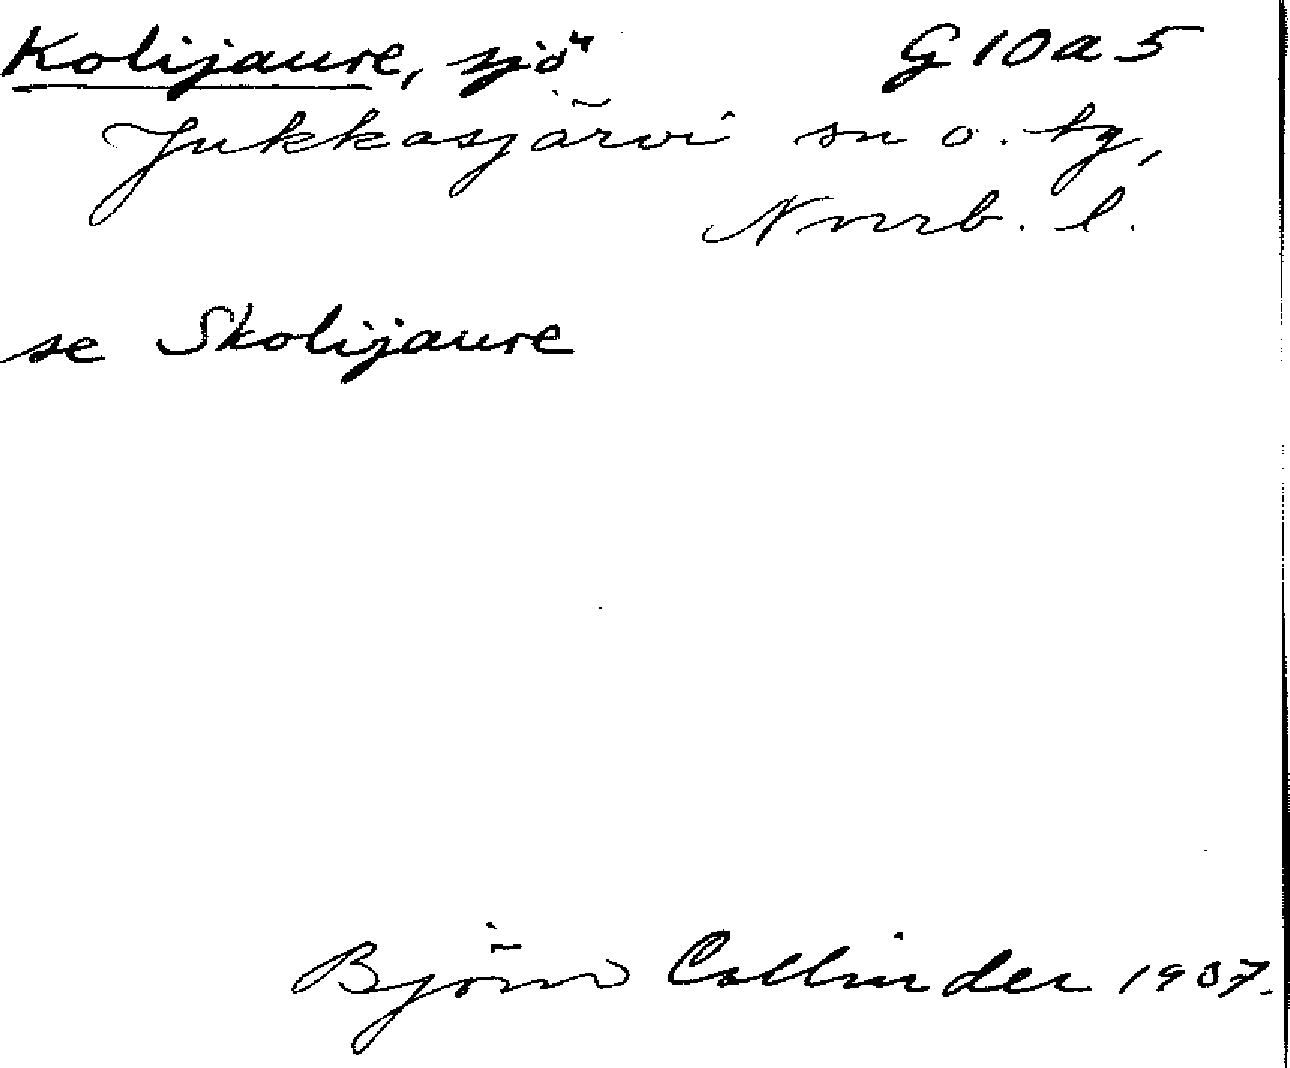 Kolijaure, sjö G10a5
Jukkasjärvi sn o. tg,
Norrb. l.
se Skolijaure
Björn Collinder 1937.